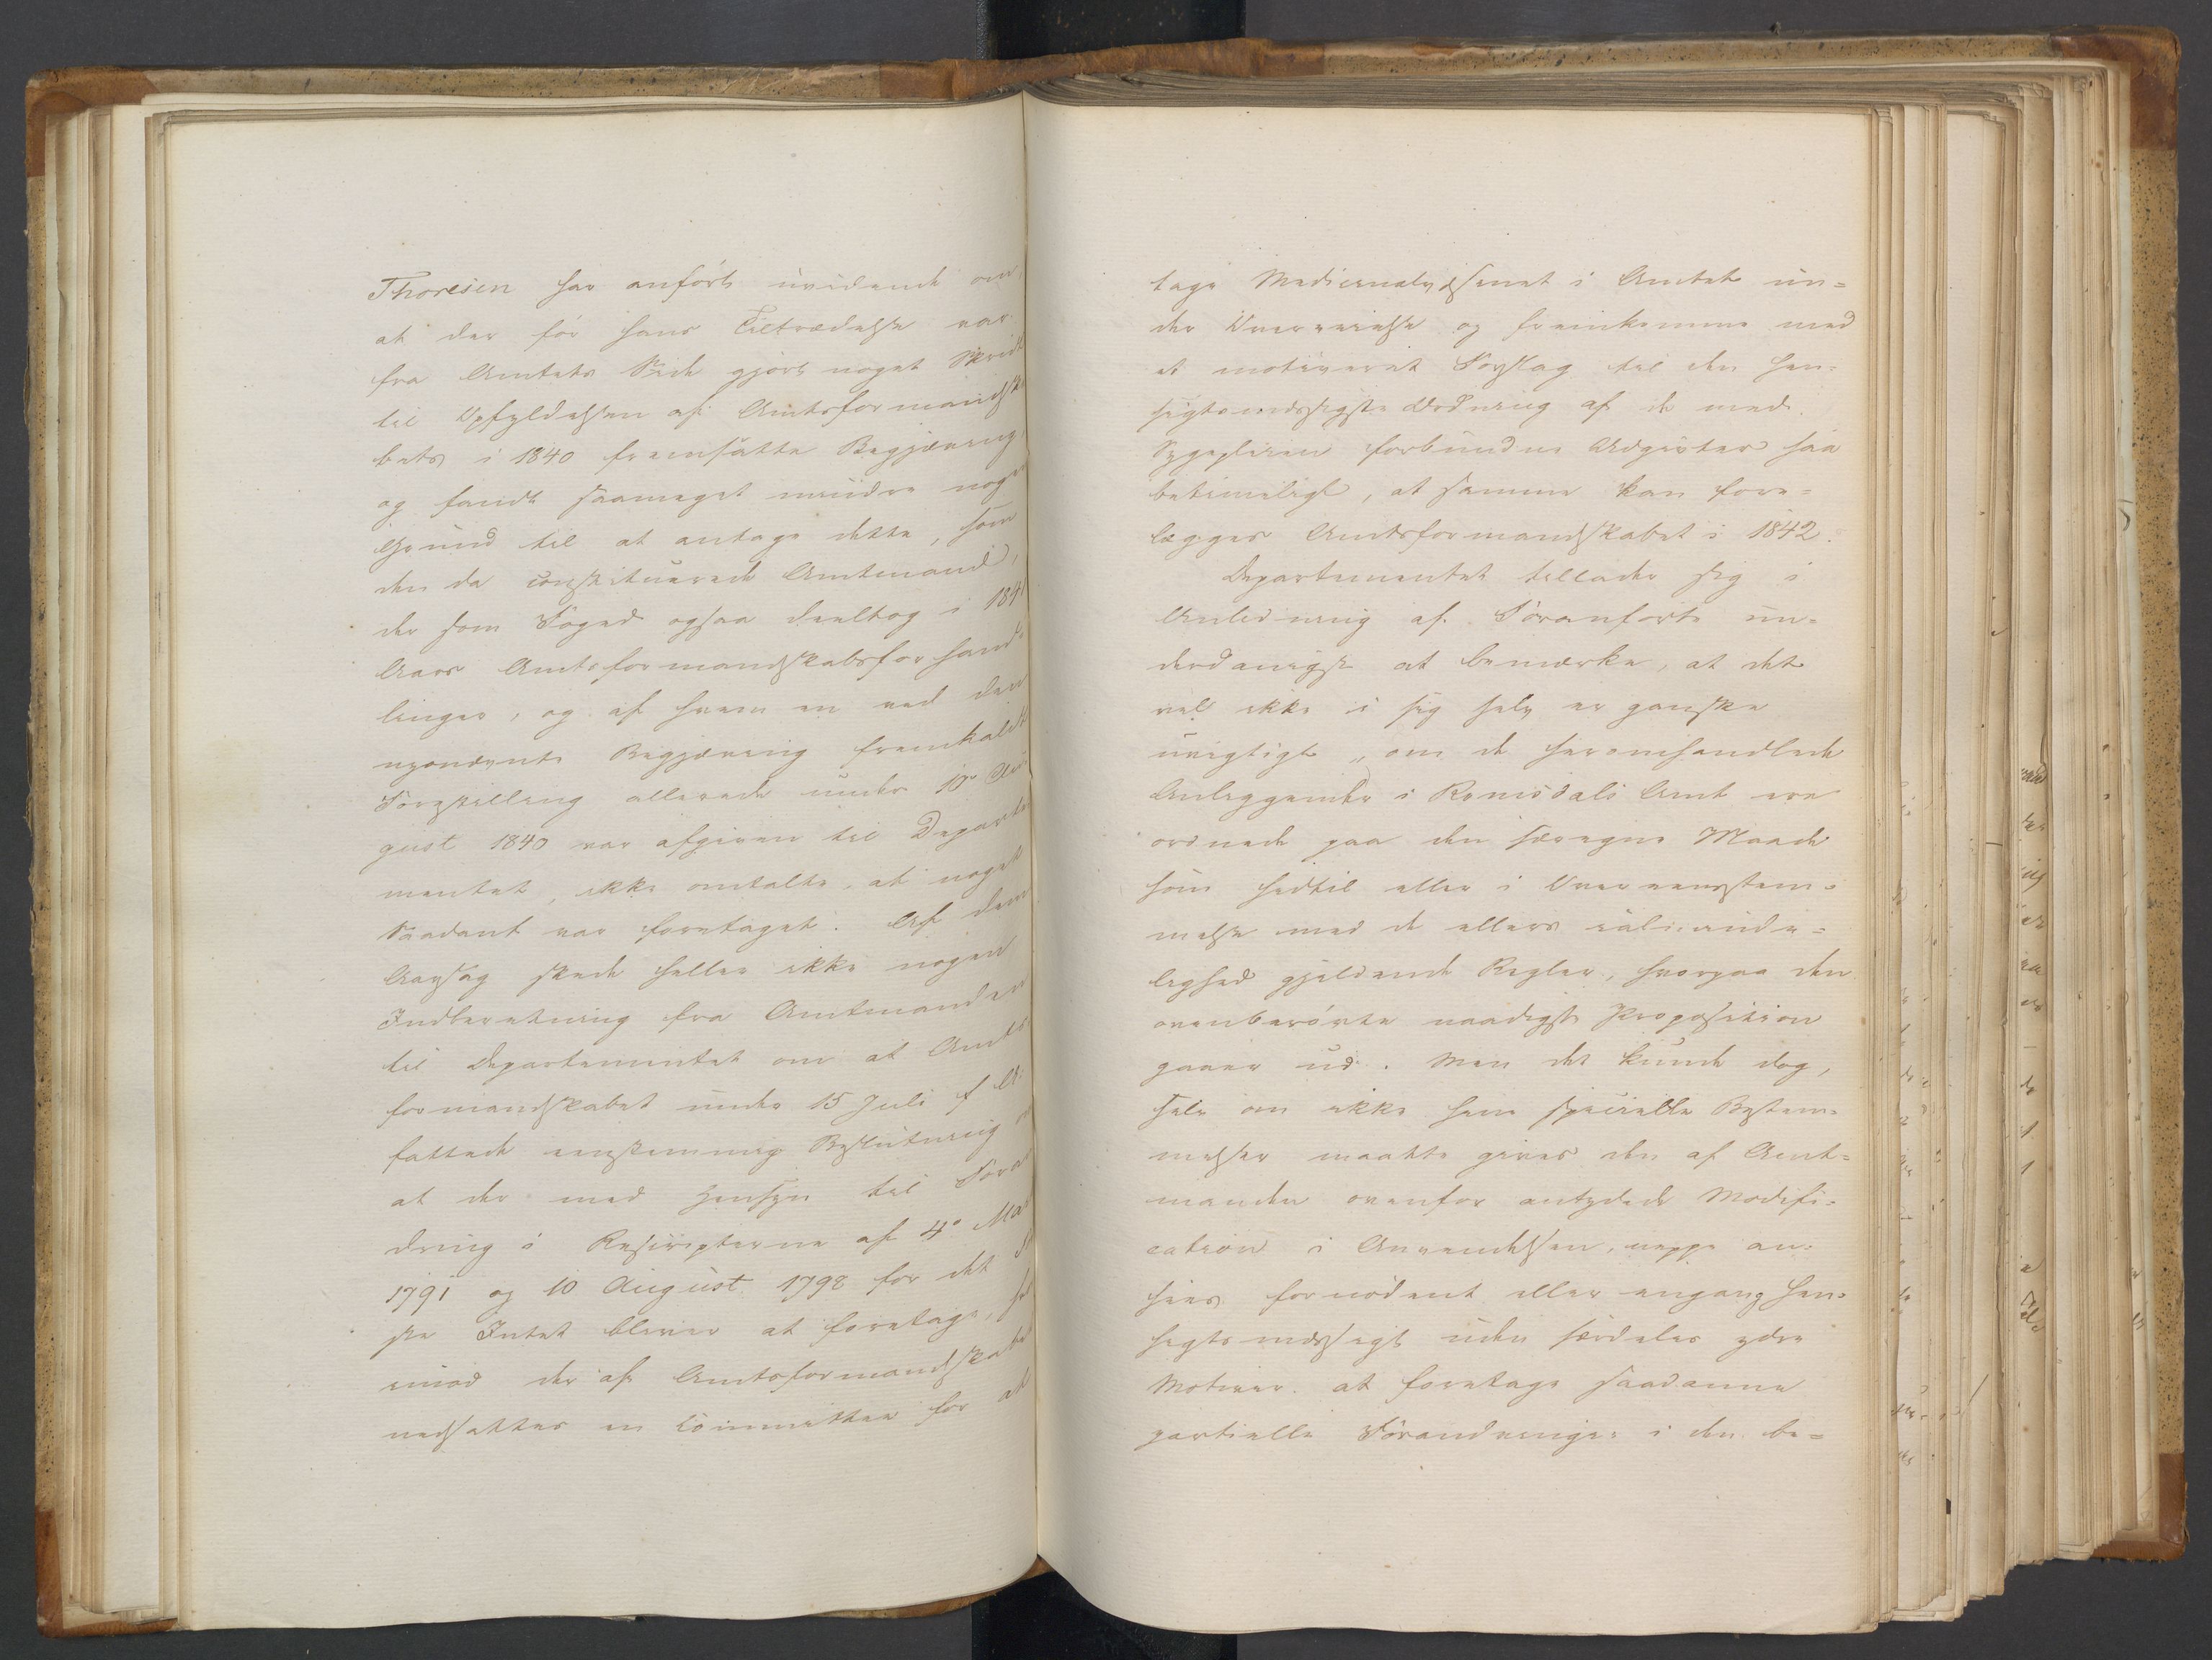 Thoresen har anført uvidende om,
at der før hans Tiltrædelse var
fra Amtets Side gjørt noget Skridt
til Opfyldelsen af Amtsformandska
bets i 1840 fremsatte Begjæring,
og fandt saameget mindre nogen
Grund til at antage dette, som
den da constituerede Amtmand,
der som Foged ogsaa deeltog i 1841
Aars Amtsformandskabsforhand-
linger, og af hvem en ved den
mpnævnte Begjæring fremkaldt
Forestilling allerede under 18de Au
gust 1840 var afgiven til Departe
mentet, ikke omtalte, at noget
Saadant var foretaget. Af den
Aarsag skede heller ikke nogen
Indberetning fra Amtmanden
til Departementet om at Amts
formandskabet under 15 Juli f. A.
fattede eenstemmig Beslutning om
at der med Hensyn til Foran
dring i Rescripterne af 4de Mai
1791 og 10 August 1798 for det
ste Intet bliver at foretage, hvor
imod der af Amtsformandskabet
nedsattes en Committee for at
tage Medicinalvæsenet i Amtet un=
der Overveielse og fremkomme med
et motiveret Forslag til den hen=
sigtsmæssigste Ordning af de med
Sygepleien forbundne Udgivter saa
betimeligt, at samme kan fore=
lægges Amtsformandskabet i 1842.
Departementet tillader sig i
Anledning af Foranførte un=
derdanigst at bemærke, at det
vel ikke i sig selv er ganske
urigtigt, om de heromhandlede
Anliggender i Romsdals Amt ere
ordnede paa den særegne Maade
som hidtil eller i Overeensstem=
melse med de ellers i Almindee=
lighed gjeldende Regler, hvorpaa den
ovenberørte naadigste Proposition
gaaer ud. Men det kunde dog,
selv om ikke hine specielle Bestem=
melser maatte gives den af Amt=
manden ovenfor antydede Modifi=
cation i Anvendelsen, neppe an=
sees fornødent eller engang hen=
sigtsmæssigt uden særdeles ydre
Motiver at foretage saadanne
partielle Forandringer i den be=